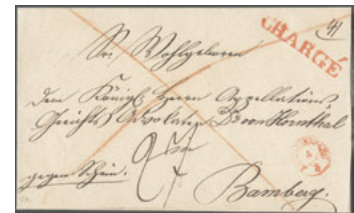 CHARGÉ
Wohlgeboren
Dem Königl. Herrn Appellations-
Gerichts Advokaten Dr von Hornthal
gegen Schein.
Bamberg.